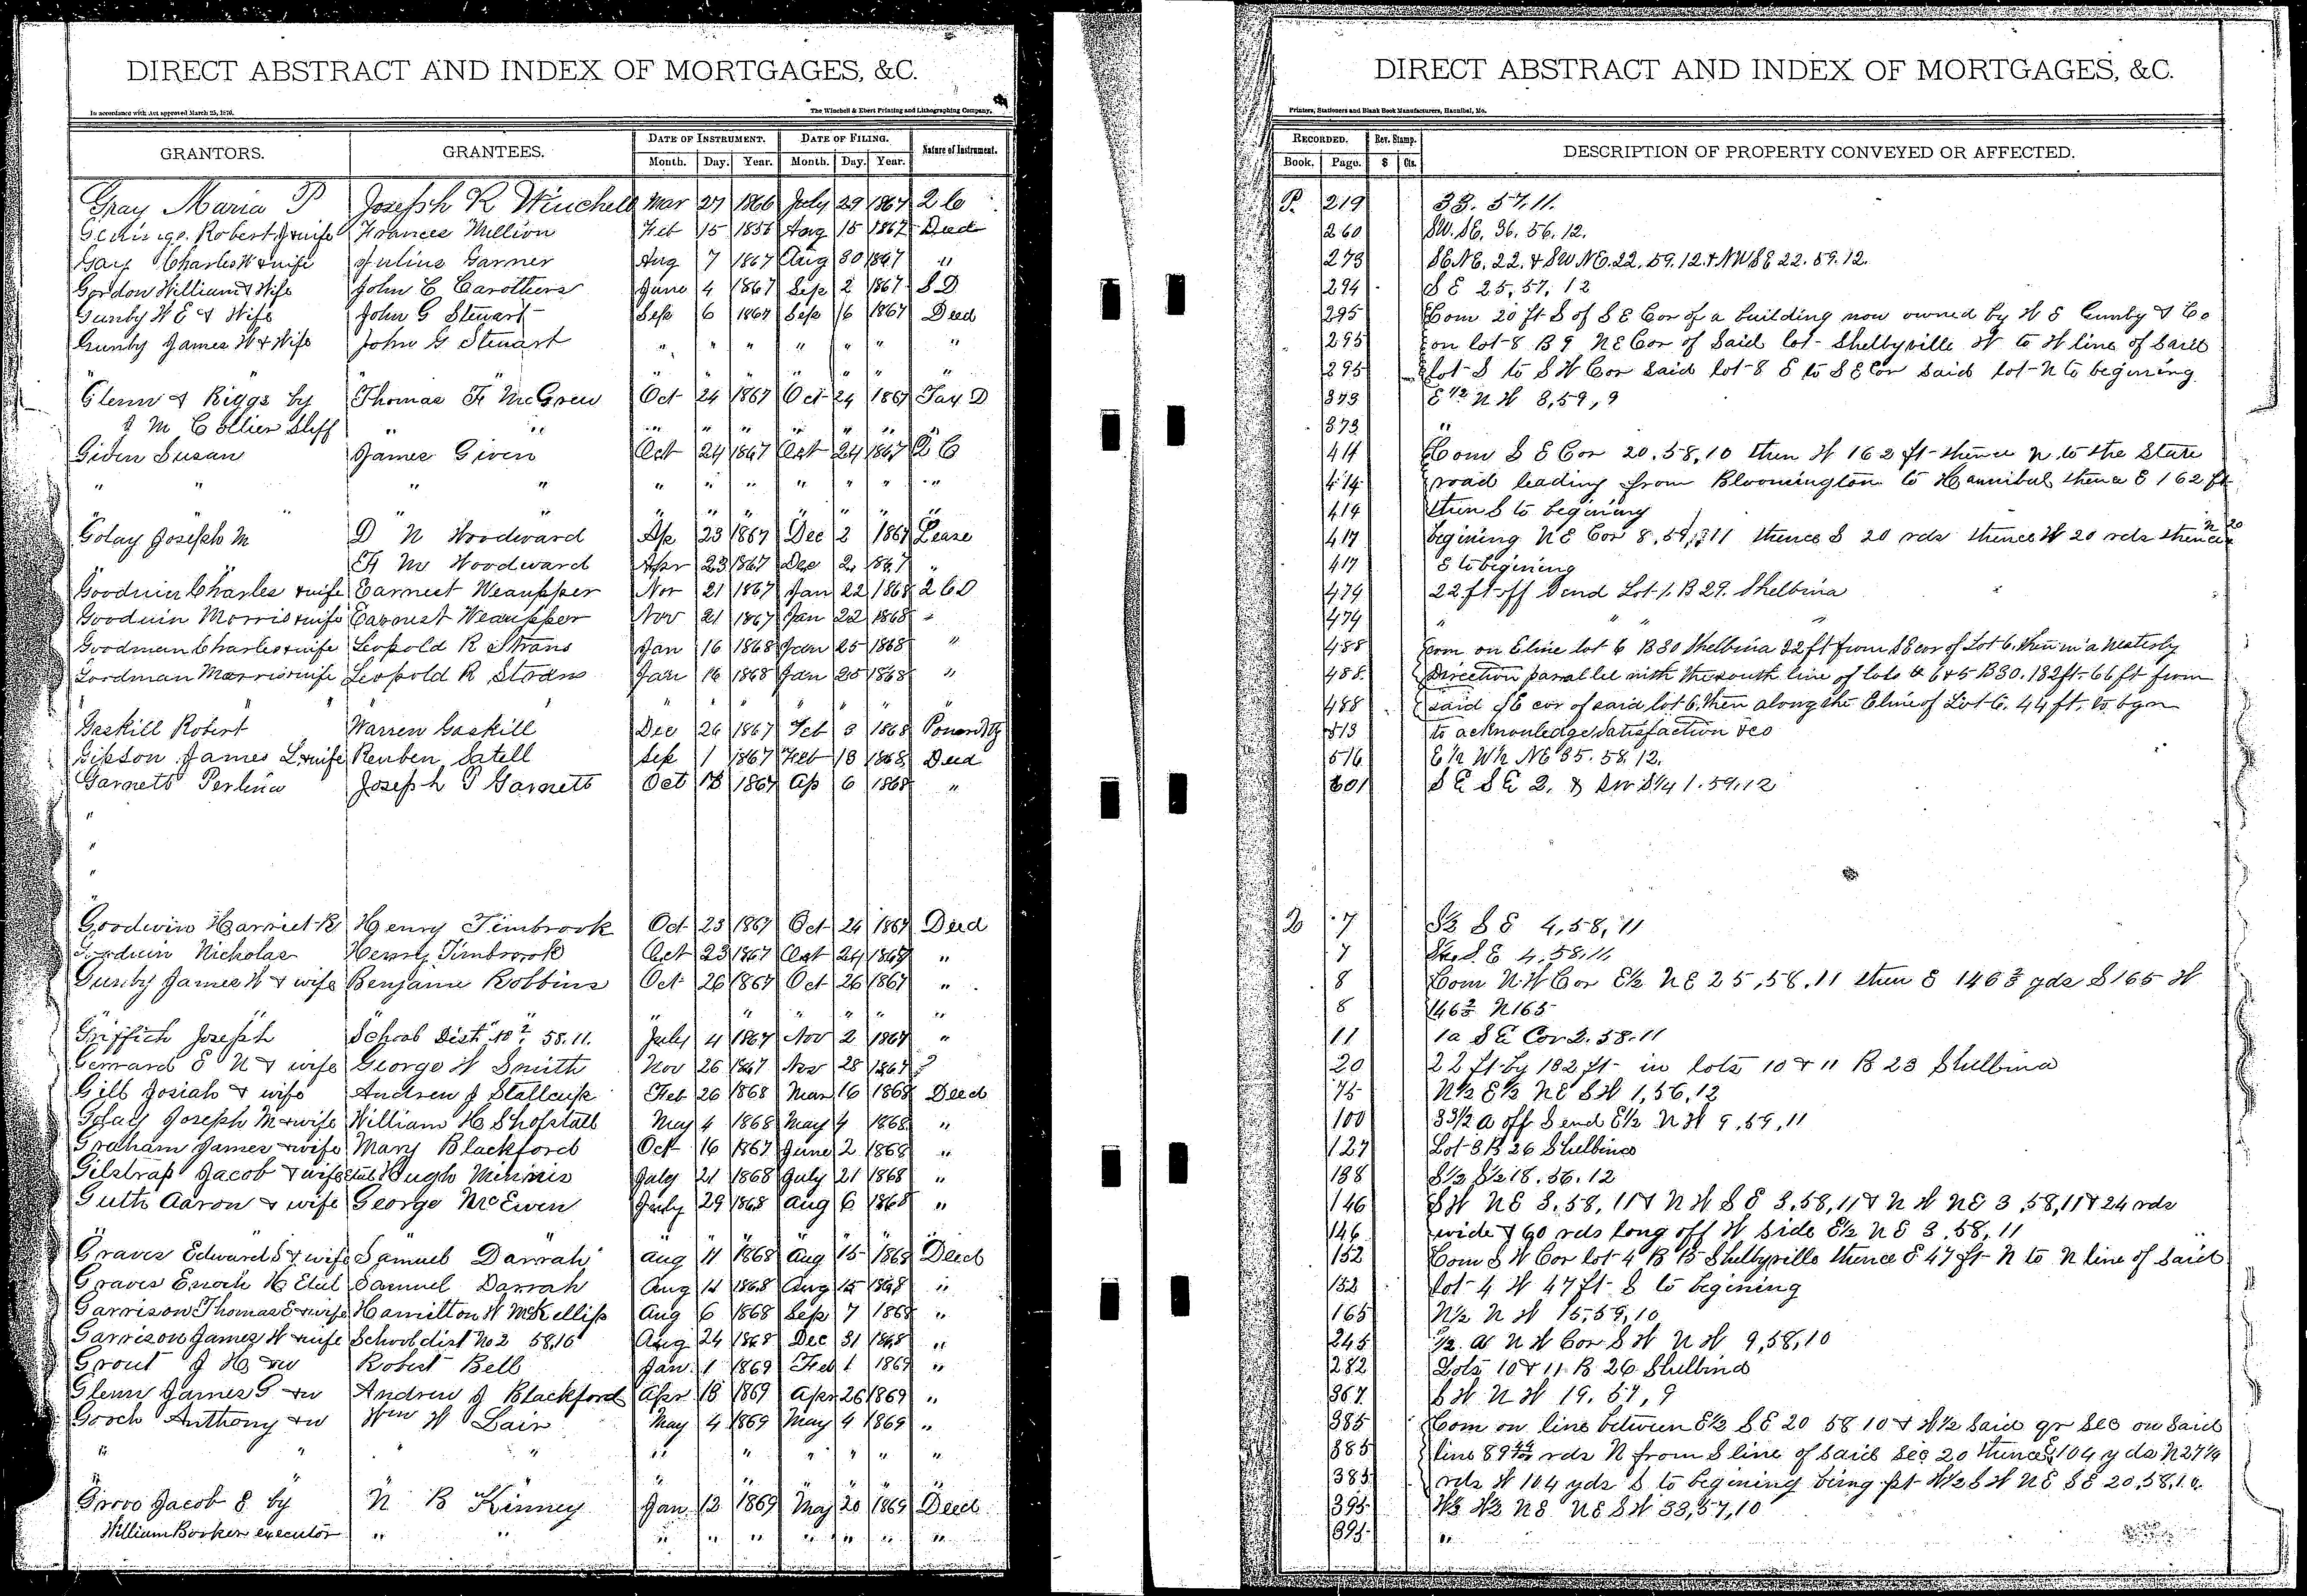 DIRECT ABSTRACT AND INDEX OF MORTGAGES, &C.
In accordance with Act approved March 25, 1870.
The Winchell & Ebert Printing and Lithographing Company,
GRANTORS. GRANTEES. DATE OF INSTRUMENT. DATE OF FILING. Nature of Instrument.
Month. Day. Year. Month. Day. Year.
Gray Maria P Joseph R Winchell Mar 27 1866 July 29 1867 2 C
Robert J & wife Frances Million Feb 15 1856 Aug 15 1867 Deed
Gay Charles W & wife Julius Garner Aug 7 1867 Aug 30 1867 "
Gordon William & Wife John C Carothers June 4 1867 Sep 2 1867 S D
Gunby W E & Wife John G Stewart Sep 6 1867 Sep 16 1867 Deed
Gunby James W & Wife John G Stewart " " " " " " "
" " " " " " " "
Glenn & Riggs by Thomas F McGrew Oct 24 1867 Oct 24 1867 Tax D
J M Collier Shff " " " " " " " "
Given Susan James Given Oct 24 1867 Oct 24 1867 2 C
" " " " " " " " " " "
" " " " " " " " " "
Golay Joseph M D N Woodward Ap 23 1867 Dec 2 1867 Lease
" F M Woodward Apr 23 1867 Dec 2 1867 "
Goodwin Charles & wife Earnest Weaupper Nov 21 1867 Jan 22 1868 2 C D
Gooduin Morris & wife Earnest Weaupper Nov 21 1867 Jan 22 1868 "
Goodman Charles & wife Leopold R Strans Jan 16 1868 Jan 25 1868 "
Goodman Morris & wife Leopold R Strans Jan 16 1868 Jan 25 1868 "
" " " " " " " "
Gaskill Robert Warren Gaskill Dec 26 1867 Feb 3 1868 Power Atty
Gipson James L & wife Reuben Satell Sep 1 1867 Feb 18 1868 Deed
Garnett Perlina Joseph P Garnett Oct 18 1867 Ap 6 1868 "
"
"
"
"
Goodwin Harriet R Henry Timbrook Oct 23 1867 Oct 24 1867 Deed
Goodwin Nicholas Henry Timbrook Oct 23 1867 Oct 24 1867 "
Gunby James W & wife Benjamin Robbins Oct 26 1867 Oct 26 1867 "
" " " " " " "
Griffich Joseph School Dist No 2 58.11. July 4 1867 Nov 2 1867 "
Gerrard E N & wife George W Smith Nov 26 1867 Nov 28 1867 ?
Gill Josiah & wife Andrew J Stallcup Feb 26 1868 Mar 16 1868 Deed
Golay Joseph M & wife William H Shofstall May 4 1868 May 9 1868 "
Graham James & wife Mary Blackford Oct 16 1867 June 2 1868 "
Gilstrap Jacob & wife etal Hugh Minnis July 21 1868 July 21 1868 "
Guth Aaron & wife George McEwen July 29 1868 Aug 6 1868 "
" " " " " " "
Graves Edward S & wife Samuel Darrah Aug 11 1868 Aug 15 1868 Deed
Graves Enoch H Etal Samuel Darrah Aug 11 1868 Aug 15 1868 "
Garrison Thomas E & wife Hamilton W McKellip Aug 6 1868 Sep 7 1868 "
Garrison James W & wife School dist No 2 58,10 Aug 24 1868 Dec 31 1868 "
Grout J H & w Robert Bell Jan 1 1869 Feb 1 1869 "
Glenn James G & w Andrew J Blackford Apr 18 1869 Apr 26 1869 "
Gooch Anthony & w Wm W Lair May 4 1869 May 4 1869 "
" " " " " " " " " " "
" " " " " " "
Grove Jacob E by N B Kinney Jan 12 1869 May 20 1869 Deed
William Booker executor " " " " " " " " "
DIRECT ABSTRACT AND INDEX OF MORTGAGES, &C.
Printers, Stationers and Blank Book Manufacturers, Hannibal, Mo.
RECORDED. Rev. Stamp. DESCRIPTION OF PROPERTY CONVEYED OR AFFECTED.
Book. Page. $ Cts.
P. 219 33. 57. 11.
260 SW. SE. 36. 56. 12.
273 SE NE. 22. & SW NE. 22, 59. 12. & NW SE 22. 59. 12.
294 S E 25, 57, 12
295 Com 20 ft S of S E Cor of a building now owned by W E Gunby & Co
295 on lot 8 B 9 N E Cor of Said lot Shelbyville W to W line of Said
295 lot S to S W Cor said lot 8 E to S E Cor said lot N to begining
373 E 1/2 N W 8, 59, 9
373 "
414 Com S E Cor 20. 58, 10 then W 162 ft thence N to the State
414 road leading from Bloomington to Hannibal thence E 162 ft
414 then S to begining
417 begining N E Cor 8, 59, 11 thence S 20 rds thence W 20 rds thence N 20
417 E to begining
474 22 ft off S end Lot 1. B 29. Shelbina
474 " " "
488 com on E line lot 6 B 30 Shelbina 22 ft from S E cor of Lot 6. then in a westerly
488 Direction parallel with the south line of lots 6 & 5 B 30. 132 ft. 66 ft from
488 said S E cor of said lot 6. then along the E line of Lot 6. 44 ft. to bgn
513 to acknowledge satisfaction &c
516 E 1/2 W 1/2 NE 35. 58. 12.
601 S E S E 2. & SW S 1/4 1. 59. 12
2 7 S 1/2 S E 4, 58, 11
7 S 1/2 S. E 4. 58. 11
8 Com N. W Cor E 1/2 N E 25, 58, 11 then E 146 2/3 yds S 165 W
8 146 2/3 N 165
11 1 a S E Cor 2. 58. 11
20 22 ft by 132 ft in lots 10 & 11 B 23 Shelbina
75 N 1/2 E 1/2 N E S W 1, 56, 12
100 33 1/2 a off S end E 1/2 N W 9, 59, 11
127 Lot 3 B 26 Shelbina
138 S 1/2 S 1/2 18. 56. 12
146 S W N E 3. 58, 11 & N W S E 3. 58, 11 & N W N E 3, 58, 11 & 24 rds
146 wide & 60 rds long off W side E 1/2 N E 3. 58, 11
152 Com S W Cor lot 4 B 15 Shelbyville thence E 47 ft N to N line of said
152 lot 4 W 47 ft S to begining
165 N 1/2 N W 15, 59, 10
245 1/2 a N W Cor S W N W 9, 58, 10
282 Lots 10 & 11 B 26 Shelbina
367 S W N W 19. 57, 9
385 Com on line between E 1/2 S E 20 58 10 & W 1/2 Said qr Sec on Said
385 line 89 rds N from S line of said Sec 20 thence E 104 yds N 27 1/4
385 rds W 104 yds S to begining being pt W 1/2 S W N E S E 20, 58, 10.
395 W 1/2 W 1/2 N E N E S W 33, 57, 10
395 "